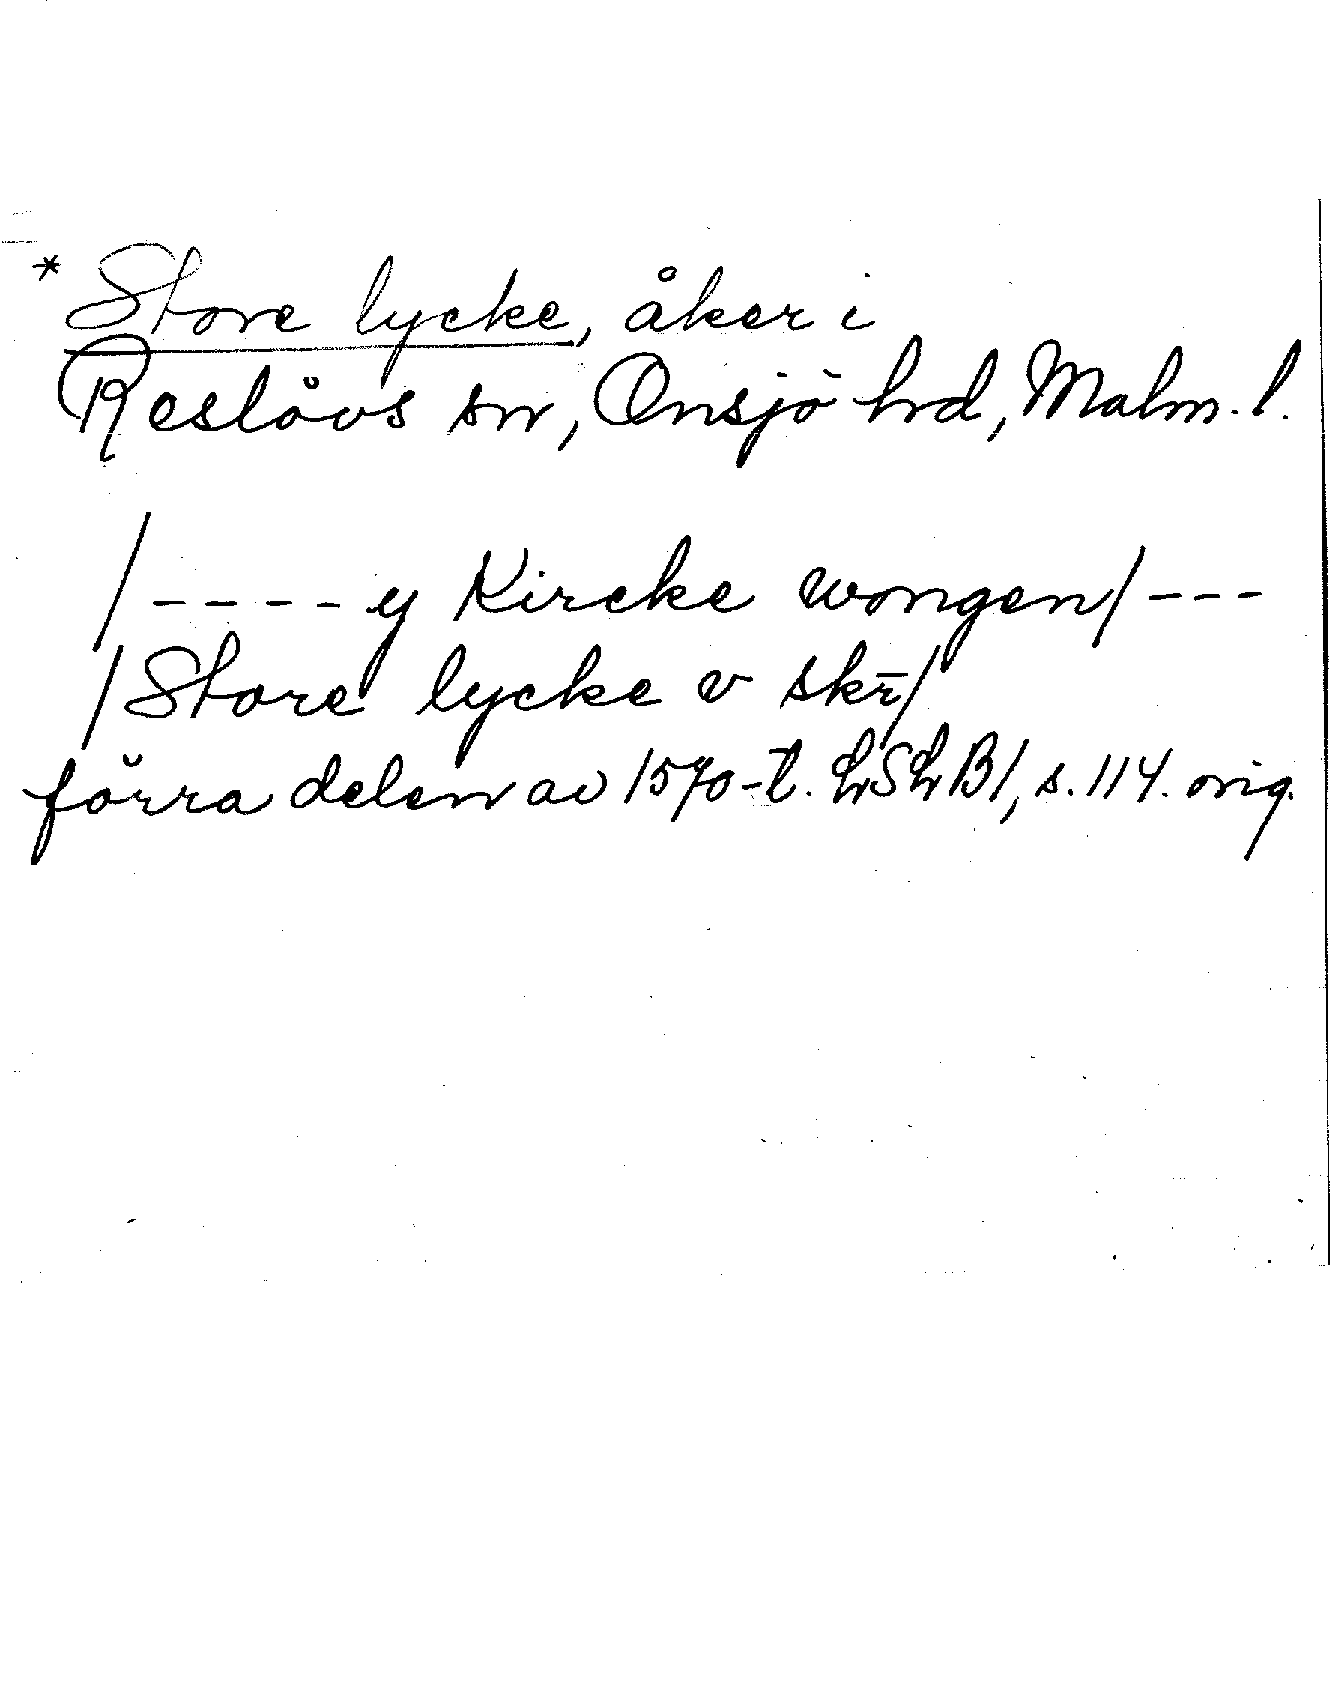 * Store lycke, åker i
Reslövs sn, Onsjö hrd, Malm. l.
/----y Kircke wongen/---
/Store lycke v skr̄/
förra delen av 1570-t. LSLB1, s. 114. orig.